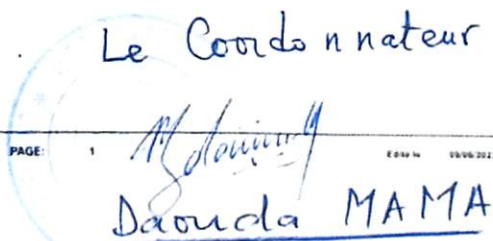 Le Coordonnateur
PAGE: 1 Edité le
Daouda MAMA